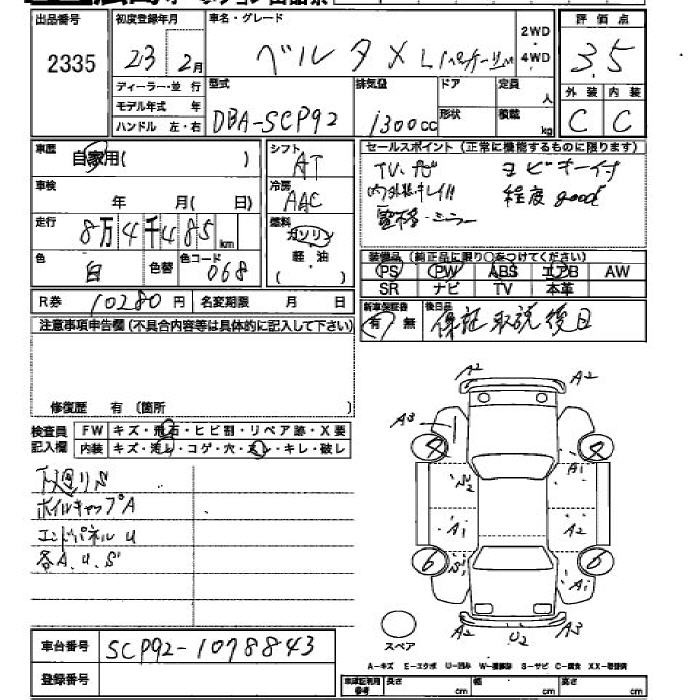 出品番号 初度登録年月 車名・グレード 2WD 評価点
2335 23 2月 ベルタ 4WD 3.5
ディーラー・並行 型式 排気量 ドア 定員 人 外装 内装
モデル年式 年 形状 積載 kg
ハンドル 左・右 DBA-SCP92 1300cc C C
車歴 自家用( ) シフト AT セールスポイント(正常に機能するものに限ります)
車検 年 月(日) 冷房 AAC TV,ナビ スピキー付
内外装キレイ!! 程度 good
電格・ミラー
走行 8万4千485km 燃料 ガソリン 軽・油 ( )
色 白 色替 色コード 068
装備品(純正品に限り○をつけてください)
PS PW ABS エアB AW
SR ナビ TV 本革
R券 10280円 名変期限 月 日 新車保証書 有 無 後日品 保証取説後日
注意事項申告欄(不具合内容等は具体的に記入して下さい)
修復歴 有 (箇所 )
検査員 FW キズ・飛石・ヒビ割・リペア跡・X要
記入欄 内装 キズ・汚レ・コゲ・穴・スレ・キレ・破レ
下廻りS
ホイルキャップA
エンドパネルU
各A.U.S
A2 A2
A3
4 4
A1
S2
A1 A2
S1
6 6
A1
A2 U2 A3
スペア
A-キズ E-エクボ U-凹み W-補修跡 S-サビ C-腐食 XX-交換済
車台番号 SCP92-1078843
登録番号
車庫証明用参考 長さ cm 幅 cm 高さ cm